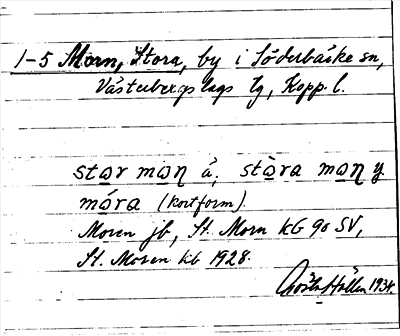 1-5 Morn, Stora, by i Söderbärke sn,
Västerbergslags tg, Kopp. l.
star man å; stàra man y
mára (kortform).
Moren jb, St. Morn KG 90 SV,
St. Moren kb 1928.
Gösta Hållén 1934.